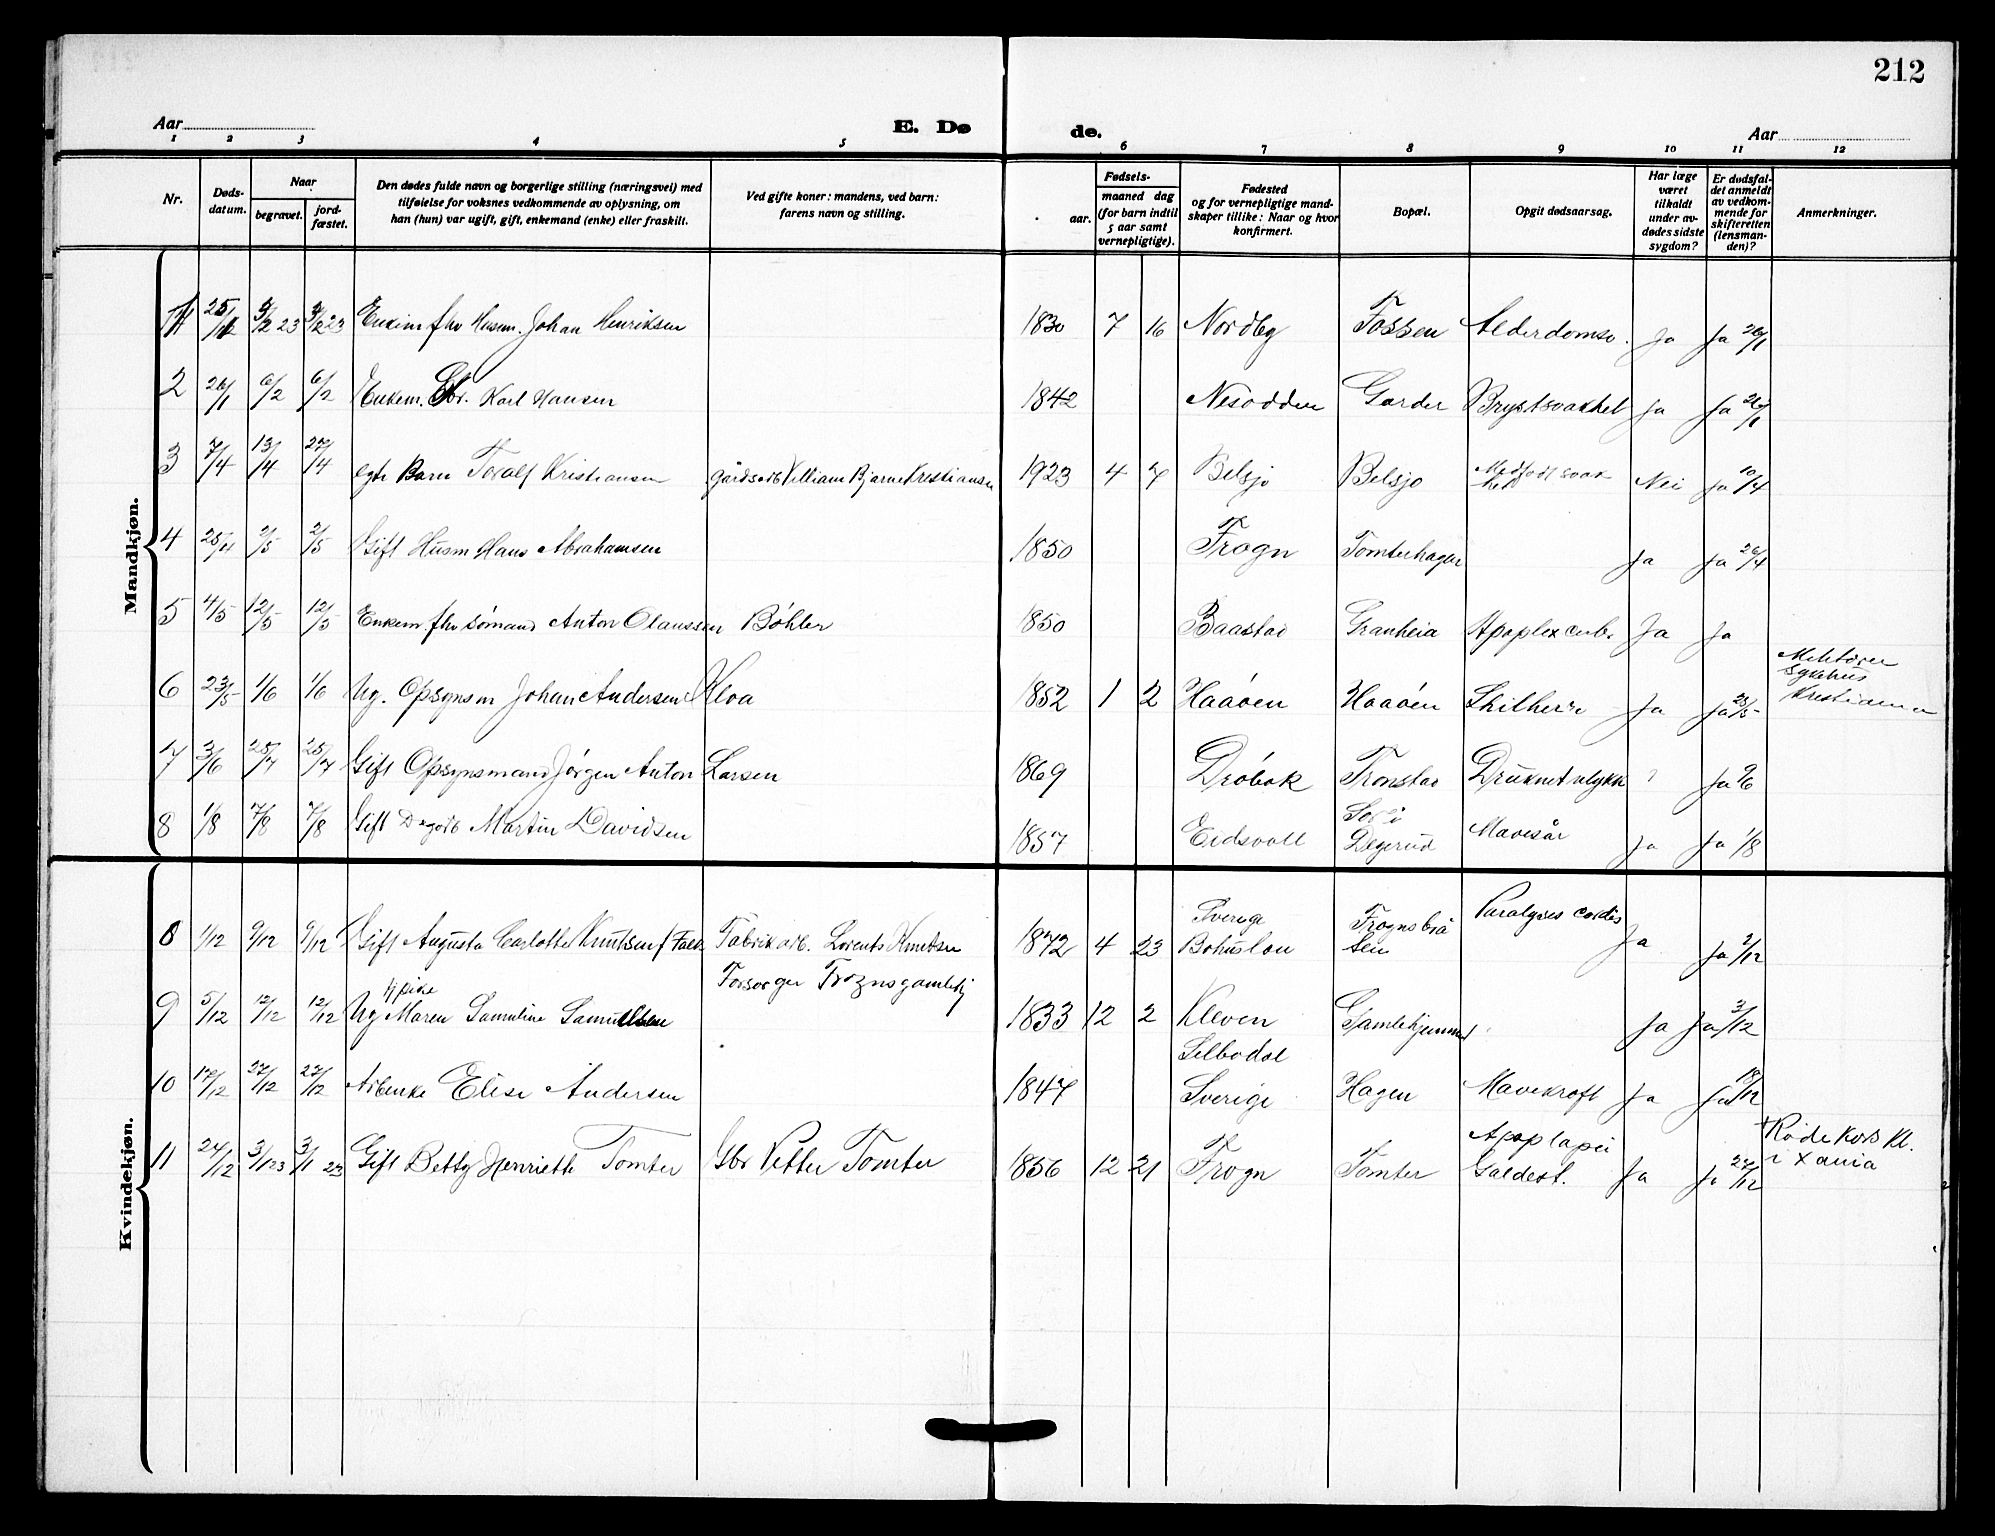 212
Aar E. Dø de. Aar
1 2 3 4 5 6 7 8 9 10 11 12
Nr.
Døds-
datum.
Naar
begravet.
jord-
fæstet.
Den dødes fulde navn og borgerlige stilling (næringsvei) med
tilføielse for voksnes vedkommende av oplysning, om
han (hun) var ugift, gift, enkemand (enke) eller fraskilt.
Ved gifte koner: mandens, ved barn:
farens navn og stilling.
Fødsels-
aar.
maaned dag
(for barn indtil
5 aar samt
vernepligtige).
Fødested
og for vernepligtige mand-
skaper tillike: Naar og hvor
konfirmert.
Bopæl.
Opgit dødsaarsag.
Har læge
været
tilkaldt
under av-
dødes sidste
sygdom?
Er dødsfal-
det anmeldt
av vedkom-
mende for
skifteretten
(lensman-
den)?
Anmerkninger.
Mandkjøn.
1 25/1 3/2 23 3/2 23 Enkem fhv Husm. Johan Henriksen 1830 7 16 Nordby Fossen Alderdomsv. Ja Ja 26/1
2 26/1 6/2 6/2 Enkem. Gbr. Karl Hansen 1842 Nesodden Garder Brystsvakhet Ja Ja 26/1
3 7/4 13/4 27/4 egte Barn Toralf Kristiansen gårdsarb Villiam Bjarne Kristiansen 1923 4 7 Belsjø Belsjø Medfødt svak
het Nei Ja 10/4
4 25/4 2/5 2/5 Gift Husm Hans Abrahamsen 1850 Frogn Tomterhagen Ja Ja 26/4
5 4/5 12/5 12/5 Enkem. fhv sømand Anton Olaussen Bøhler 1850 Baastad Granheia Apoplex cerb. Ja Ja
6 23/5 1/6 1/6 Ug. Opsynsm Johan Andersen Kloa 1852 1 2 Haaøen Haaøen Ja Ja 25/5 Militære
Sykehus
Kristiania
7 3/6 25/7 25/7 Gift Opsynsmand Jørgen Anton Larsen 1869 Drøbak Tronstad Druknet ulykke ? Ja 9/6
8 1/8 7/8 7/8 Gift Dagarb Martin Davidsen 1857 Eidsvoll Sørˢ
Degerud Mavesår Ja Ja 1/8
Kvindekjøn.
8 1/12 9/12 9/12 Gift Augusta Carlotte Knutsen f Falk Fabrikarb. Lorents Knutsen 1872 4 23 Sverige
Bohuslen Frognsbrå
ten Paralyses cordis Ja Ja 2/12
9 5/12 12/12 12/12 Ug Maren Samuline Samuelsen Forsorger Frogns gamlehj 1833 12 2 Kleven Gamlehjemmet Ja Ja 3/12
10 17/12 27/12 27/12 Arbenke Elise Andersen 1847 Selbodal
Sverige Hagen Mavekræft Ja Ja 18/12
11 24/12 3/1 23 3/1 23 Gift Betty Henriette Tomter Gbr Petter Tomter 1856 12 21 Frogn Tomter
Galdest. Ja Ja 27/12 Røde Kors Kl.
i Xania